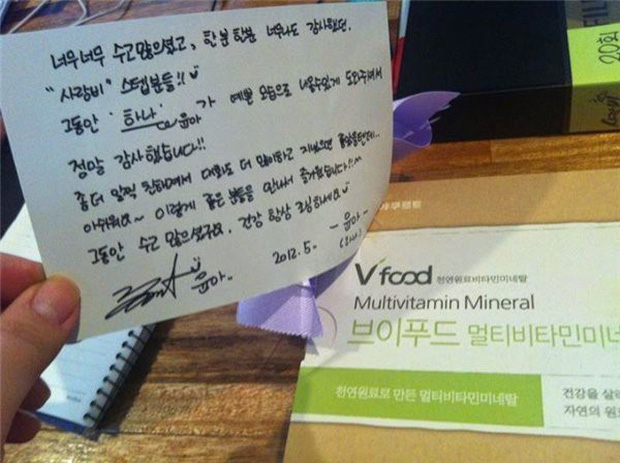 너무너무 수고 많으셨고, 한분 한분 너무나도 감사했던.
"사랑비" 스텝분들!!
그동안 '하나' 윤아가 예쁜 모습으로 나올수있게 도와주셔서
정말 감사했습니다!!
좀더 일찍 친해져서 대화도 더 많이하고 지냈으면 좋았을텐데..
아쉬워요~ 이렇게 좋은 분들을 만나서 즐거웠습니다!!^^
그동안 수고 많으셨구요. 건강 항상 조심하세요
2012.5. - 윤아 -
(하나)
윤아.
20회
V'food 천연원료비타민미네랄
Multivitamin Mineral
브이푸드 멀티비타민미네
천연원료로 만든 멀티비타민미네랄
건강을 살
자연의 원